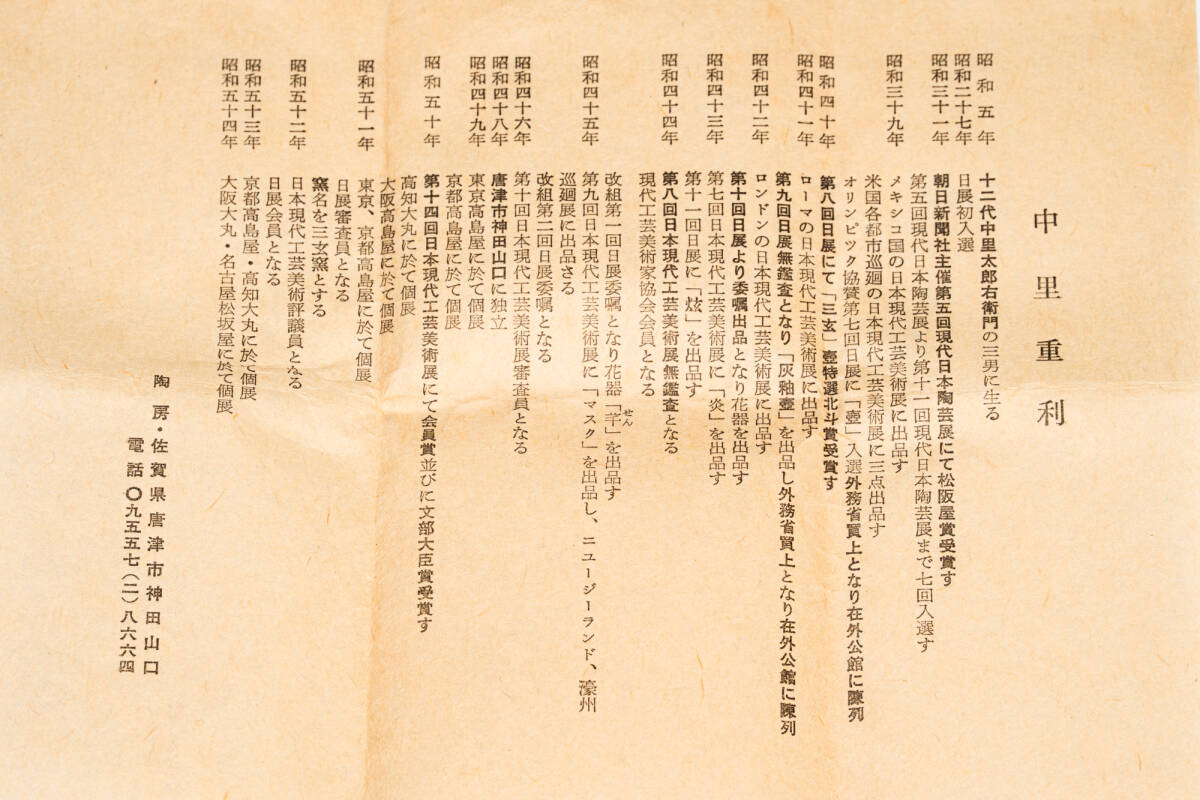 中里重利
昭和五年　十二代中里太郎右衛門の三男に生る
昭和二十七年　日展初入選
昭和三十一年　朝日新聞社主催第五回現代日本陶芸展にて松阪屋賞受賞す
第五回現代日本陶芸展より第十一回現代日本陶芸展まで七回入選す
昭和三十九年　メキシコ国の日本現代工芸美術展に出品す
米国各都市巡廻の日本現代工芸美術展に三点出品す
オリンピック協賛第七回日展に「壺」入選外務省買上となり在外公館に陳列
昭和四十年　第八回日展にて「三玄」壺特選北斗賞受賞す
昭和四十一年　ローマの日本現代工芸美術展に出品す
第九回日展無鑑査となり「灰釉壺」を出品し外務省買上となり在外公館に陳列
昭和四十二年　ロンドンの日本現代工芸美術展に出品す
第十回日展より委嘱出品となり花器を出品す
昭和四十三年　第七回日本現代工芸美術展に「炎」を出品す
第十一回日展に「炫」を出品す
昭和四十四年　第八回日本現代工芸美術展無鑑査となる
現代工芸美術家協会会員となる
改組第一回日展委嘱となり花器「芉」を出品す
せん
昭和四十五年　第九回日本現代工芸美術展に「マスク」を出品し、ニュージーランド、濠州
巡廻展に出品さる
改組第二回日展委嘱となる
昭和四十六年　第十回日本現代工芸美術展審査員となる
昭和四十八年　唐津市神田山口に独立
昭和四十九年　東京高島屋に於て個展
京都高島屋に於て個展
昭和五十年　第十四回日本現代工芸美術展にて会員賞並びに文部大臣賞受賞す
高知大丸に於て個展
大阪高島屋に於て個展
昭和五十一年　東京、京都高島屋に於て個展
日展審査員となる
窯名を三玄窯とする
昭和五十二年　日本現代工芸美術評議員となる
日展会員となる
昭和五十三年　京都高島屋・高知大丸に於て個展、
昭和五十四年　大阪大丸・名古屋松坂屋に於て個展、
陶房・佐賀県唐津市神田山口
電話〇九五五七(二)八六六四